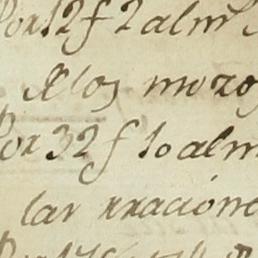 Por 12 f 2 alm
A los mozos
Por 32 f 10 alm
las rracione